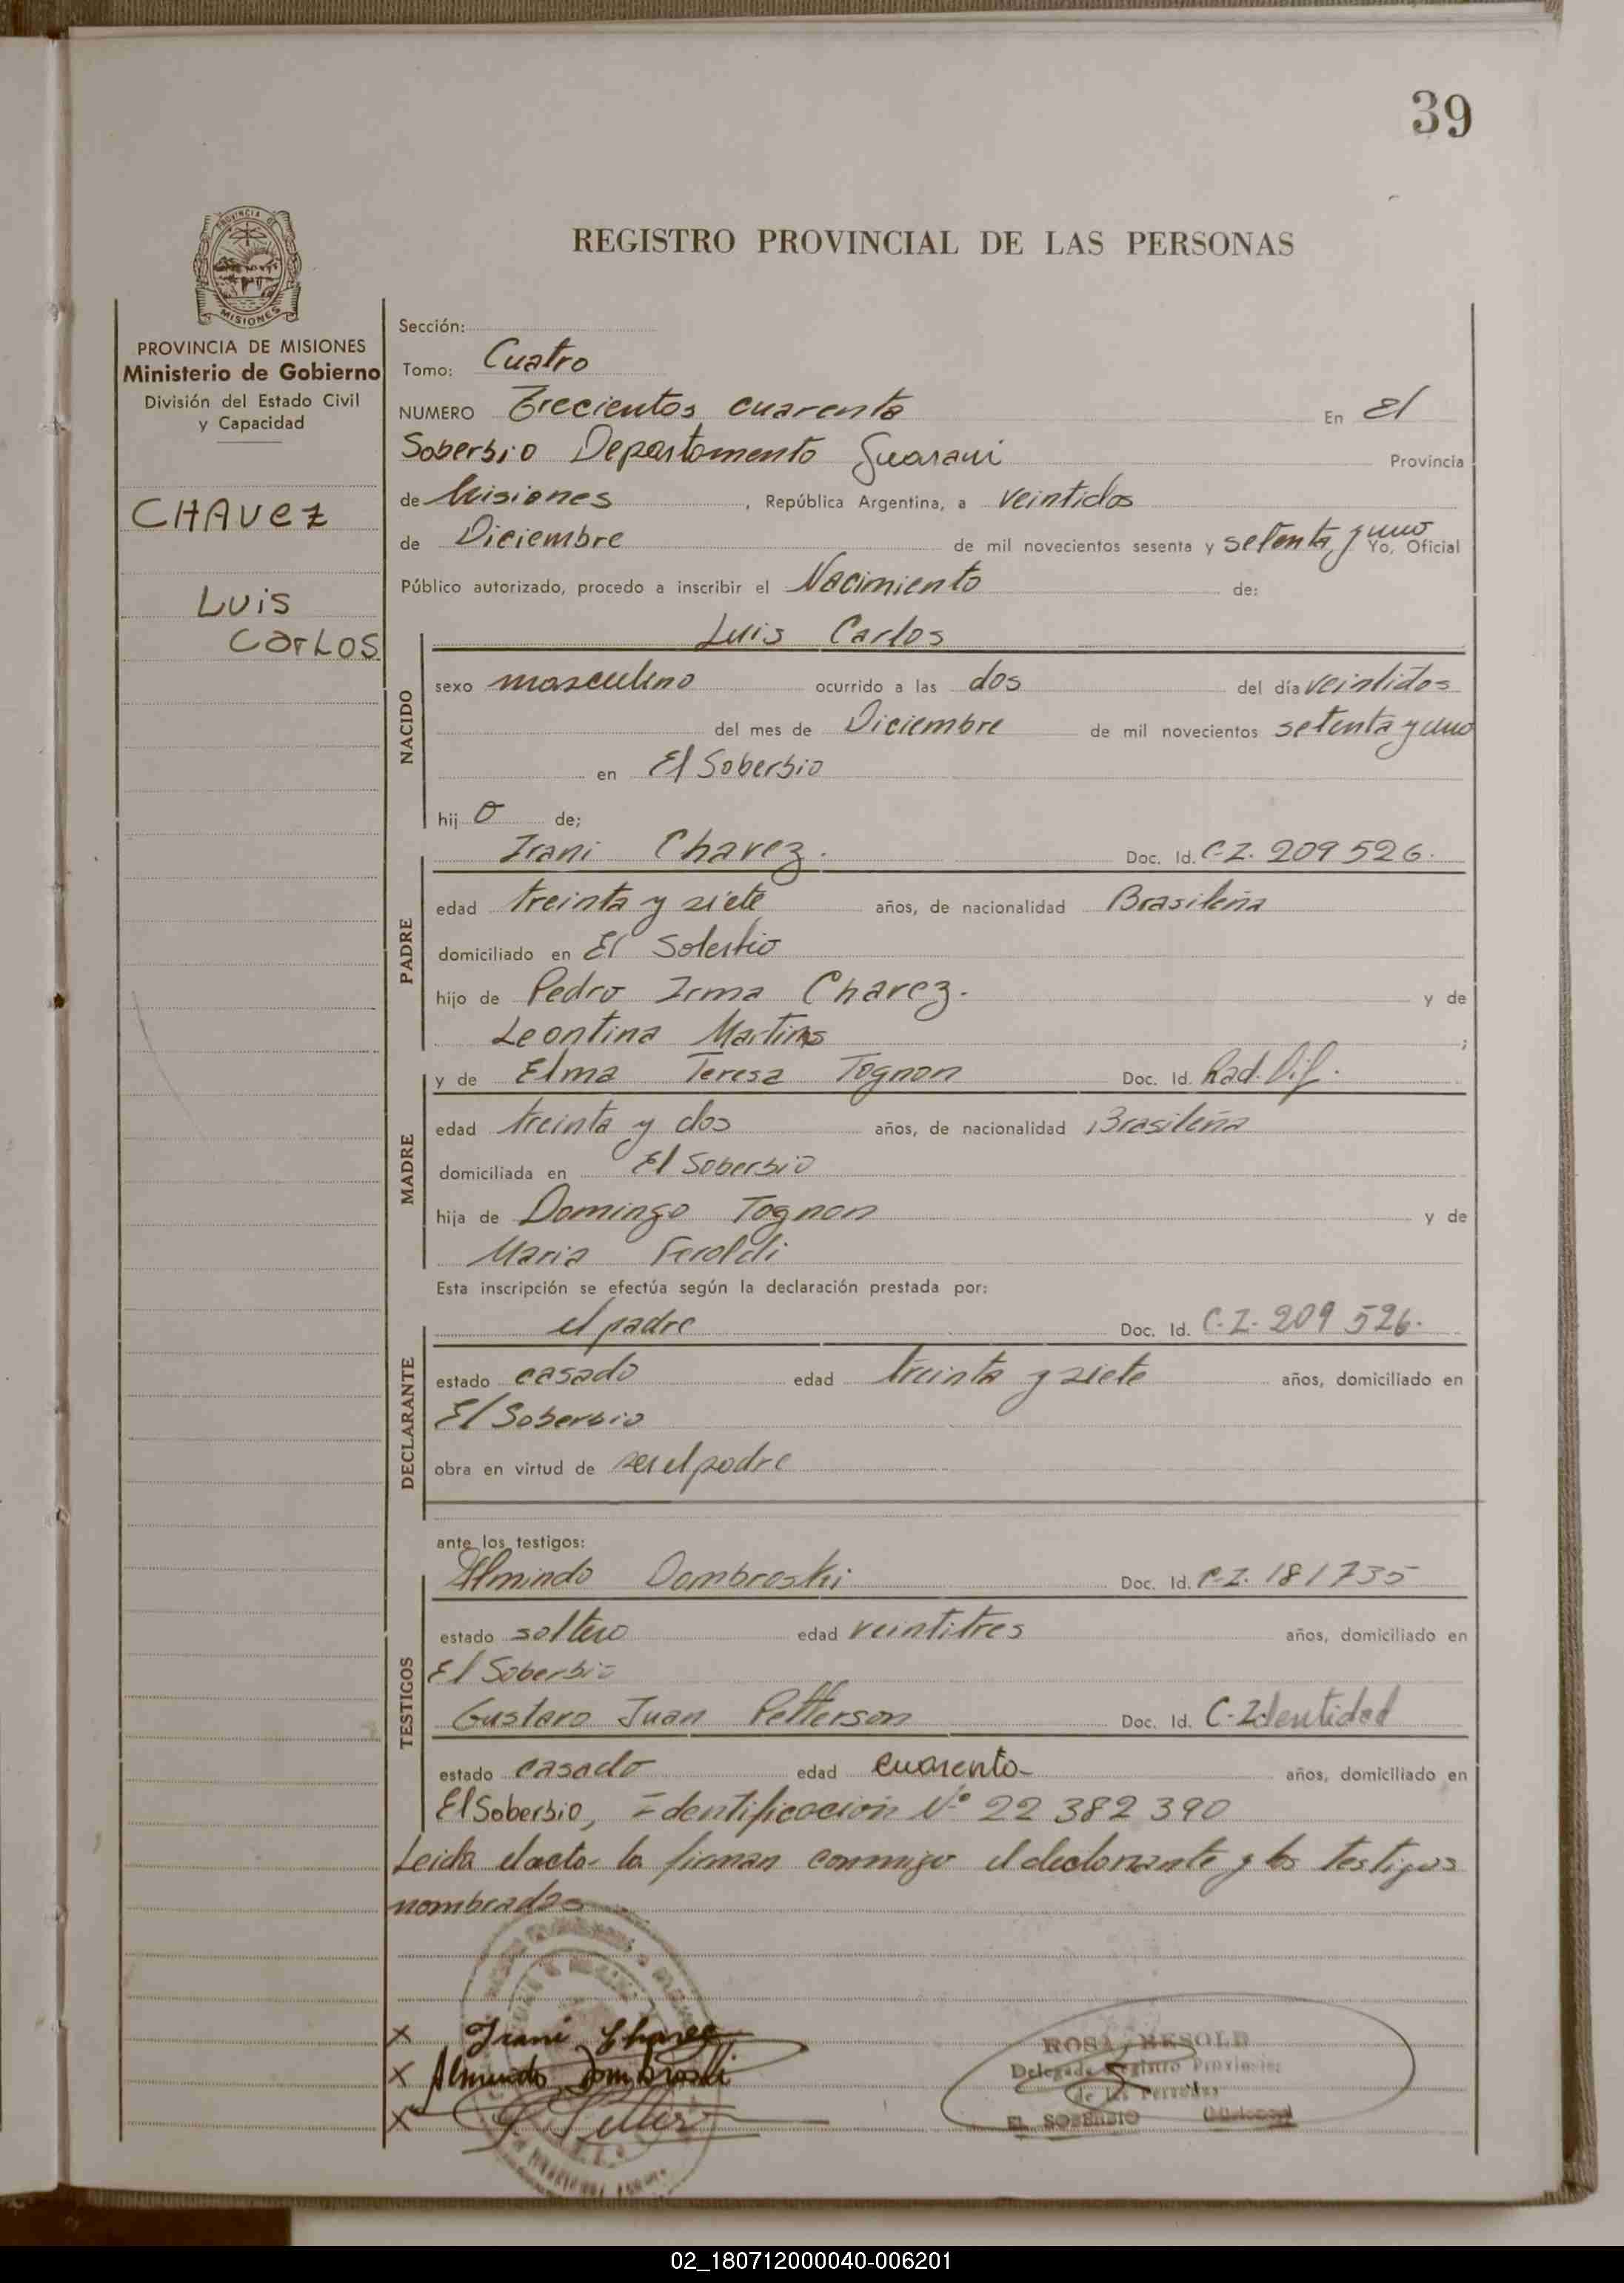 39
PROVINCIA DE
MISIONES
REGISTRO PROVINCIAL DE LAS PERSONAS
PROVINCIA DE MISIONES
Ministerio de Gobierno
División del Estado Civil
y Capacidad
CHAVEZ
LUiS
CarLOS
Sección:
Tomo: Cuatro
NUMERO Trecientos cuarenta En El
Soberbio Departamento Guarani Provincia
de Misiones, República Argentina, a veintidos
de Diciembre de mil novecientos sesenta y setenta y uno Yo, Oficial
Público autorizado, procedo a inscribir el Nacimiento de:
Luis Carlos
NACIDO
sexo masculino ocurrido a las dos del día veintidos
del mes de Diciembre de mil novecientos setenta y uno
en El Soberbio
hij o de;
Irani Chavez. Doc. Id. C.I. 209 526.
PADRE
edad treinta y siete años, de nacionalidad Brasileña
domiciliado en El Soberbio
hijo de Pedro Irma Chavez. y de
Leontina Martins ;
y de Elma Teresa Tognon Doc. Id. Rad. Dif.
MADRE
edad treinta y dos años, de nacionalidad Brasileña
domiciliada en El Soberbio
hija de Domingo Tognon y de
Maria Feroldi
Esta inscripción se efectúa según la declaración prestada por:
el padre Doc. Id. C.I. 209 526.
DECLARANTE
estado casado edad treinta y siete años, domiciliado en
El Soberbio
obra en virtud de ser el padre
ante los testigos:
Almindo Dombroski Doc. Id. C.I. 181735
TESTIGOS
estado soltero edad veintitres años, domiciliado en
El Soberbio
Gustavo Juan Petterson Doc. Id. C-Identidad
estado casado edad cuarenta años, domiciliado en
El Soberbio, Identificación Nº 22 382 390
Leida el acta la firman conmigo el declarante y los testigos
nombrados
X Irani Chavez
X Almindo Dombroski
X
ROSA RESOLD
Delegada Registro Provincial
de las Personas
EL SOBERBIO (Misiones)
02_180712000040-006201